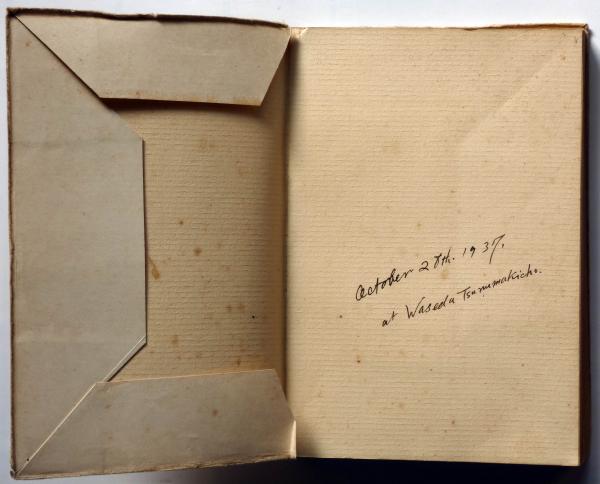 October 28th. 1937.
at Waseda Tsurumakicho.